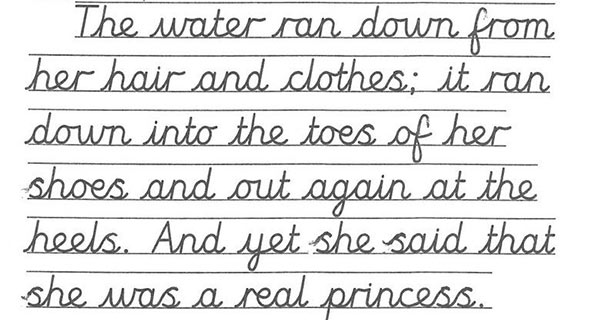 The water ran down from
her hair and clothes; it ran
down into the toes of her
shoes and out again at the
heels. And yet she said that
she was a real princess.